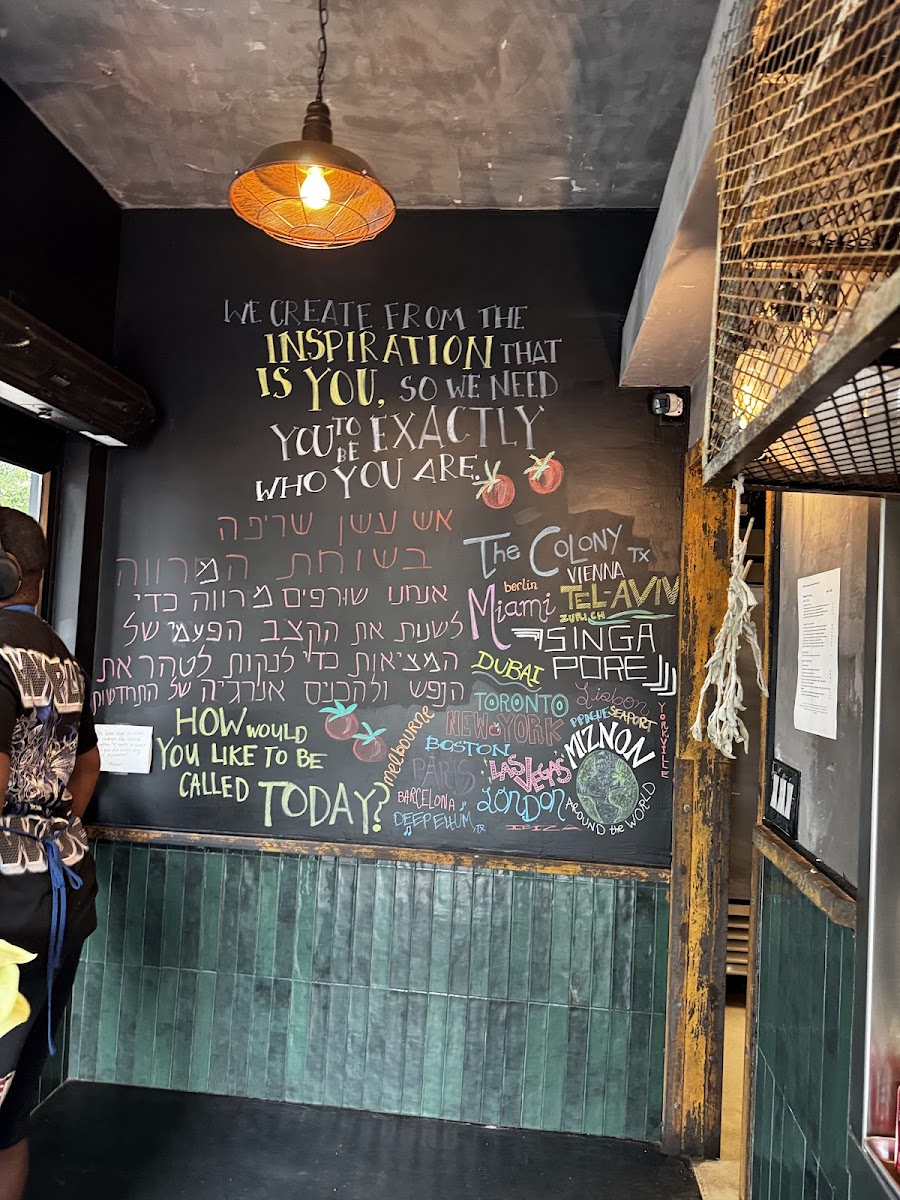 WE CREATE FROM THE
INSPIRATION THAT
IS YOU, SO WE NEED
YOU TO BE EXACTLY
WHO YOU ARE.
אש עשן שריפה
בשוחת המרווה
אנחנו שורפים מרווה כדי
לשנות את הקצב הפעמי של
המציאות כדי לנקות לטהר את
הנפש ולהכניס אנרגיה של התחדשות
HOW WOULD
YOU LIKE TO BE
CALLED TODAY?
THE COLONY TX
berlin
VIENNA
Miami
TEL-AVIV
ZURICH
SINGA
PORE
DUBAI
TORONTO
Lisbon
NEW YORK
PRAGUE
SEAPORT
YORKVILLE
melbourne
BOSTON
PARIS
LAS VEGAS
BARCELONA
LONDON
DEEP ELLUM, TX
IBIZA
MIZNON
AROUND the WORLD